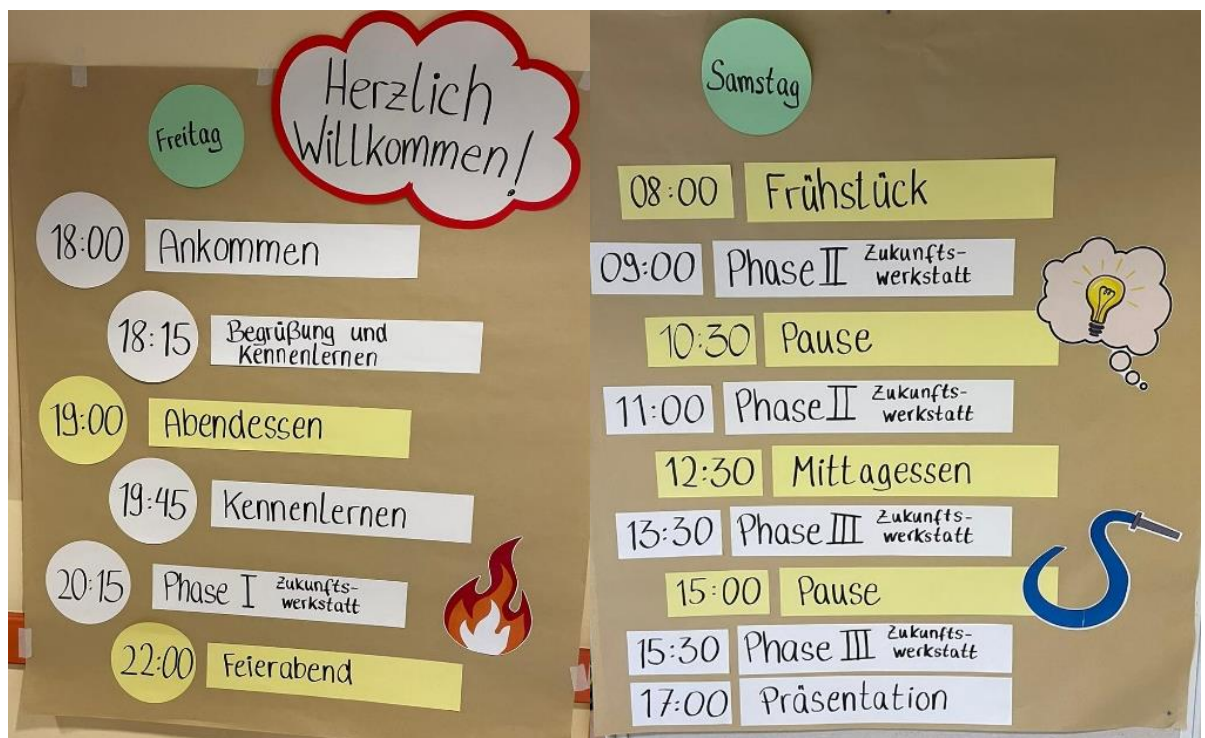 Herzlich
Willkommen!
Freitag
18:00 Ankommen
18:15 Begrüßung und
Kennenlernen
19:00 Abendessen
19:45 Kennenlernen
20:15 Phase I Zukunfts-
werkstatt
22:00 Feierabend
Samstag
08:00 Frühstück
09:00 Phase II Zukunfts-
werkstatt
10:30 Pause
11:00 Phase II Zukunfts-
werkstatt
12:30 Mittagessen
13:30 Phase III Zukunfts-
werkstatt
15:00 Pause
15:30 Phase III Zukunfts-
werkstatt
17:00 Präsentation